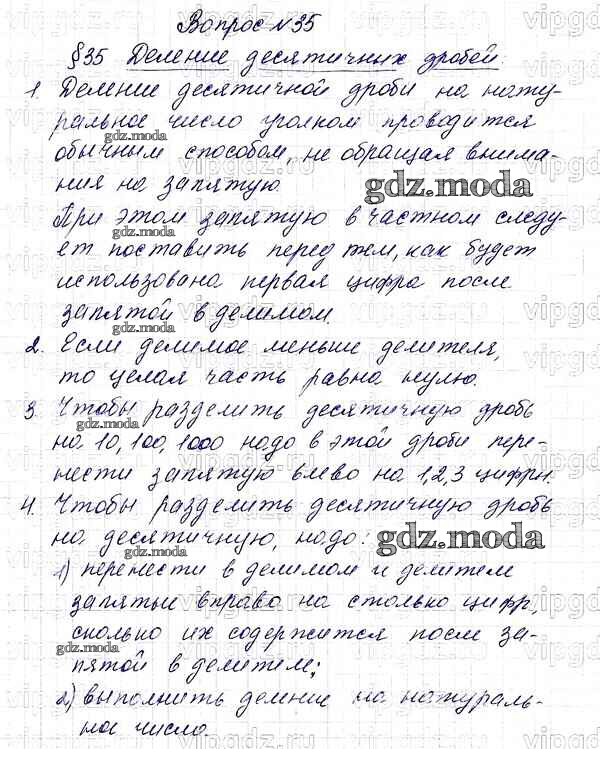 Вопрос №35
§35 Деление десятичных дробей.
1. Деление десятичной дроби на нату-
ральное число уголком проводится
обычным способом, не обращая внима-
ния на запятую.
При этом запятую в частном следу-
ет поставить перед тем, как будет
использована первая цифра после
запятой в делимом.
2. Если делимое меньше делителя,
то целая часть равна нулю.
3. Чтобы разделить десятичную дробь
на 10, 100, 1000 надо в этой дроби пере-
нести запятую влево на 1,2,3 цифры.
4. Чтобы разделить десятичную дробь
на десятичную, надо:
1) перенести в делимом и делителе
запятые вправо на столько цифр,
сколько их содержится после за-
пятой в делителе;
2) выполнить деление на натураль-
ное число.
gdz.moda
gdz.moda
gdz.moda
gdz.moda
gdz.moda
gdz.moda
gdz.moda
gdz.moda
gdz.moda
vipgdz.ru